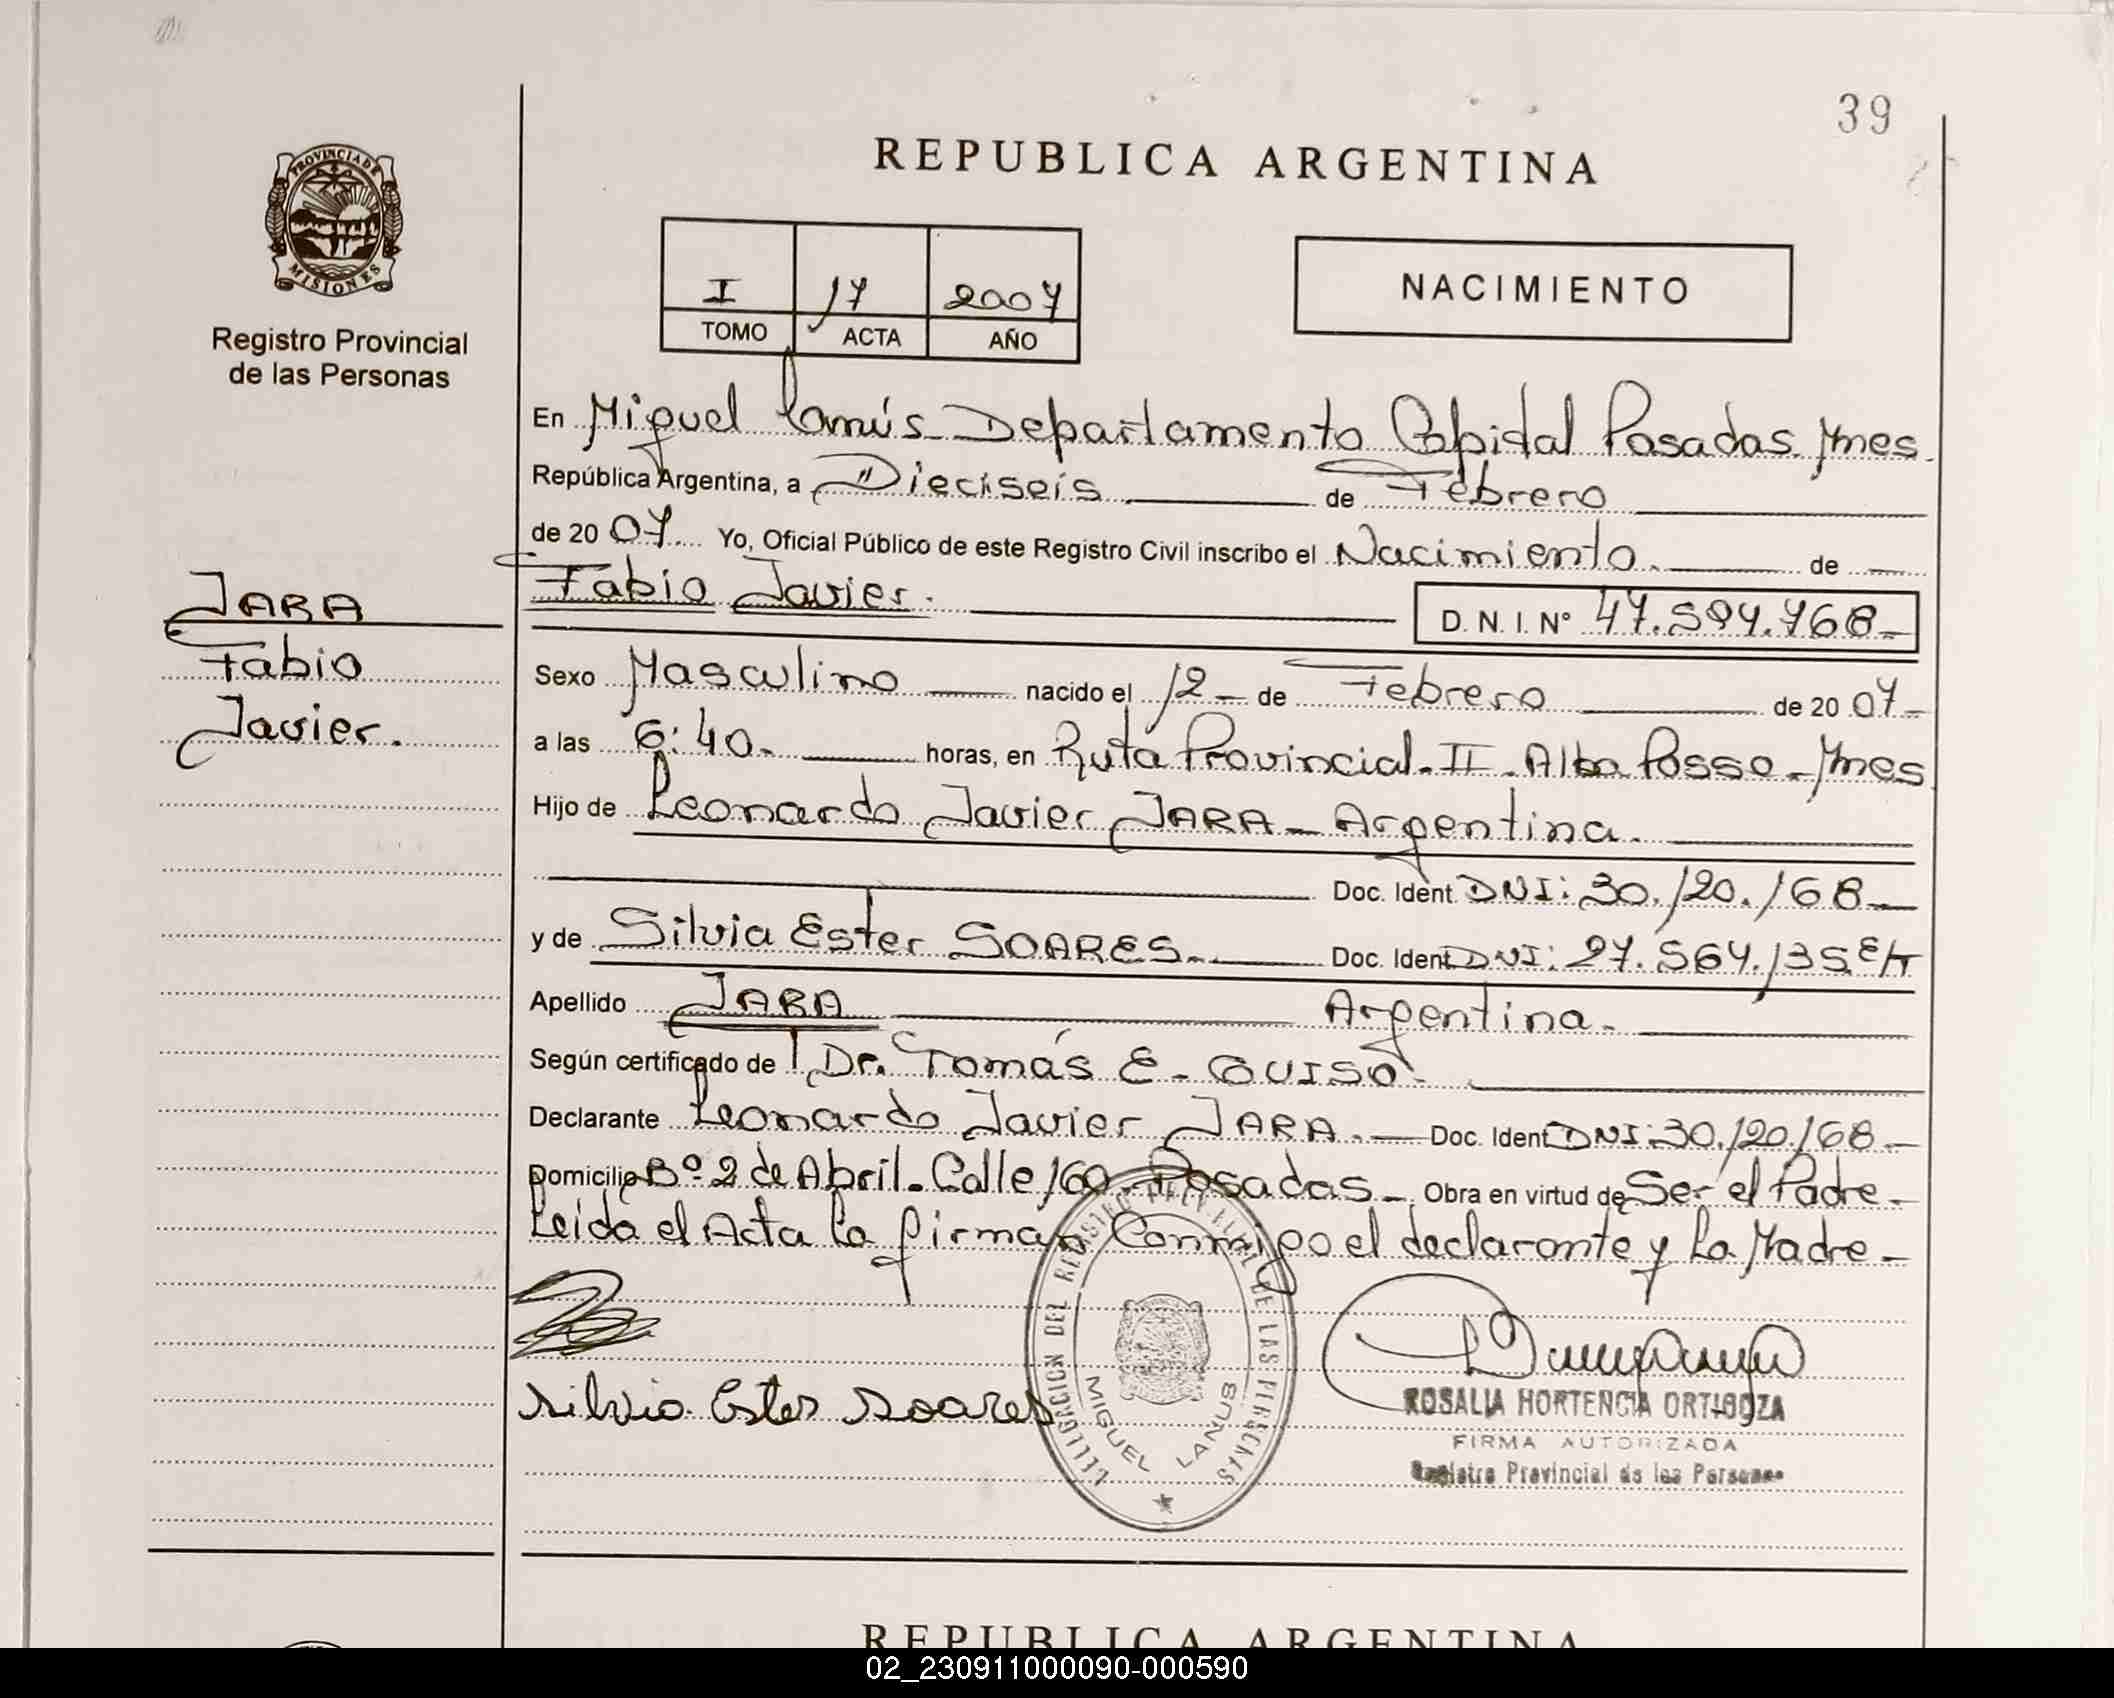 39
REPUBLICA ARGENTINA
PROVINCIA DE
MISIONES
Registro Provincial
de las Personas
I 17 2007
TOMO ACTA AÑO
NACIMIENTO
En Miguel Lanús - Departamento Capital Posadas. Mnes.
República Argentina, a "Dieciseis de Febrero
de 20 07. Yo, Oficial Público de este Registro Civil inscribo el Nacimiento. de
Fabio Javier.
D. N. I. Nº 47.594.768-
JARA
Fabio
Javier.
Sexo Masculino nacido el 12 - de Febrero de 20 07-
a las 6:40. horas, en Ruta Provincial - II - Alba Posse - Mnes
Hijo de Leonardo Javier JARA - Argentina.
Doc. Ident. DNI: 30.120.168-
y de Silvia Ester SOARES. Doc. Ident DNI: 27.564.135
Apellido JARA Argentina.
Según certificado de Dr. Tomás E. GUISO.
Declarante Leonardo Javier JARA. Doc. Ident DNI: 30.120.168-
Domicilio Bº 2 de Abril - Calle 160 - Posadas - Obra en virtud de Ser el Padre -
Leida el Acta la firman Conmigo el declarante y La Madre -
Silvia Ester Soares
DELEGACION DEL REGISTRO PROVINCIAL DE LAS PERSONAS
MIGUEL LANUS
ROSALIA HORTENCIA ORTIGOZA
FIRMA AUTORIZADA
Registro Provincial de las Personas
REPUBLICA ARGENTINA
02_230911000090-000590